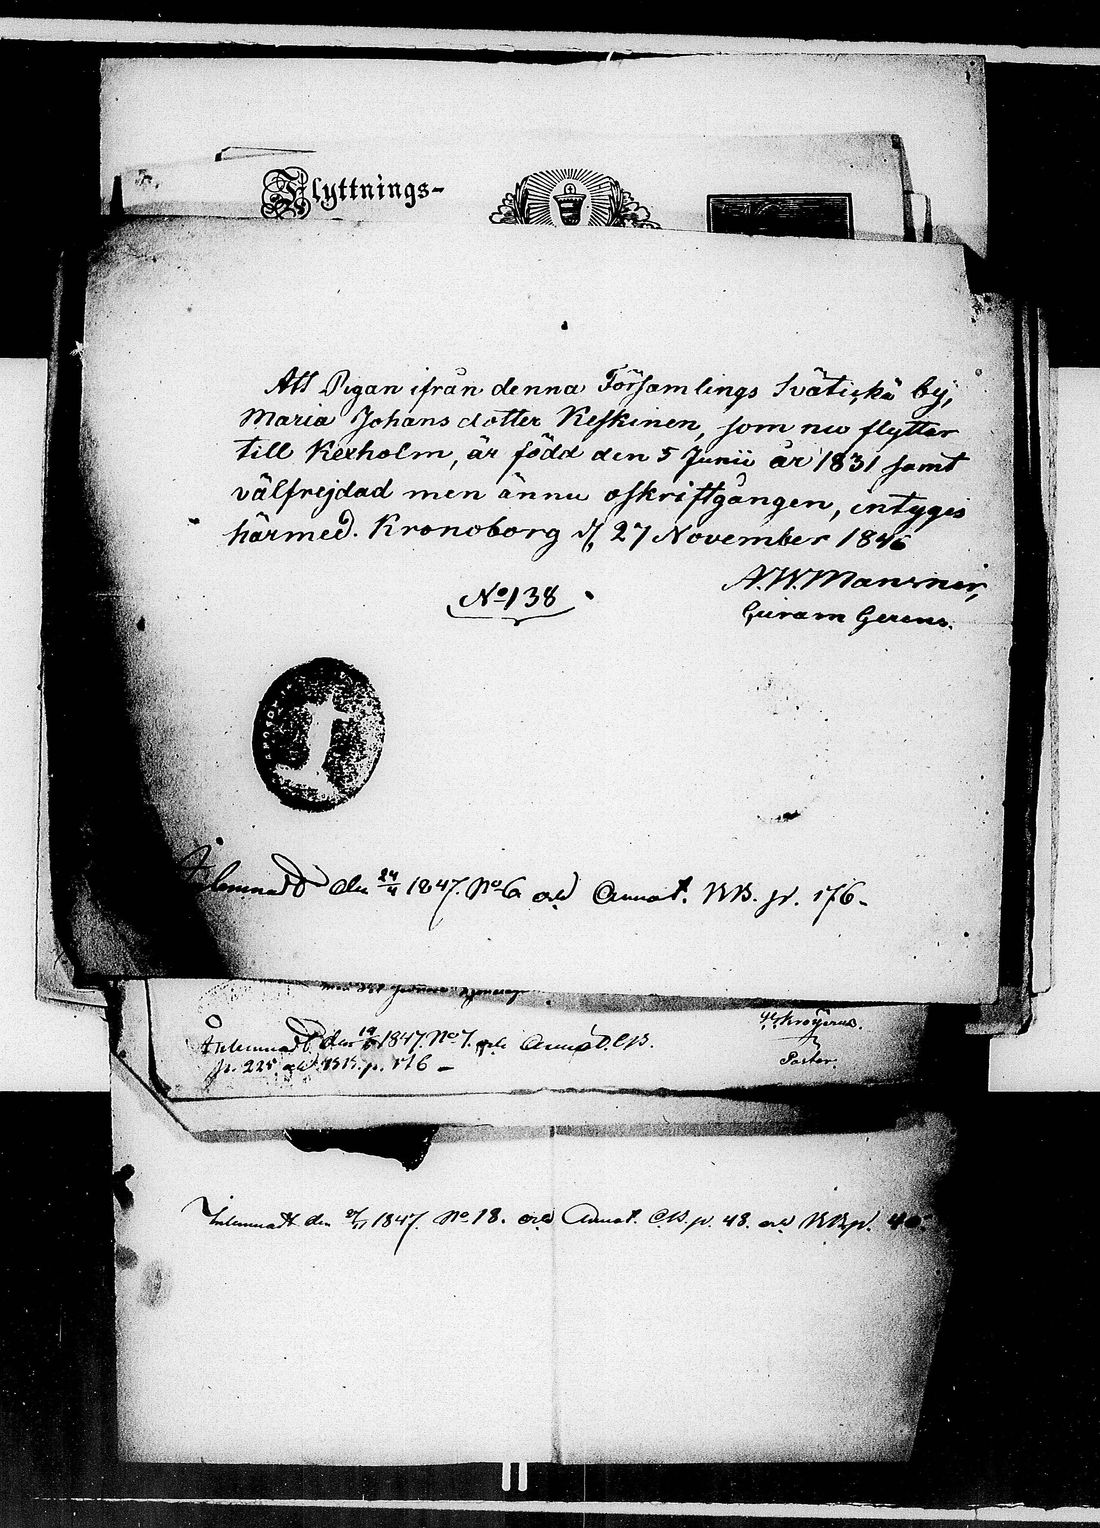 Flyttnings-
Att Pigan ifrån denna Församlings Svätickä by,
Maria Johansdotter Keskinen, som nu flytter
till Kexholm, är född den 5 Junii år 1831 samt
välfrejdad men ännu oskriftgången, intygis
härmed. Kronoborg d, 27 November 1846
A. W. Manzner,
Curam Gerens.
No 138
Inlemnadt den 24/4 1847. No 6 och Annot. BB. p. 176.
Inlemnadt den 1847. No 7. och Annot. C.B.
p. 225 och BB. p. 176
Pastor.
Inlemnadt den 1847. No 18. och Annot. C.B. p. 48. och BB p. 40.